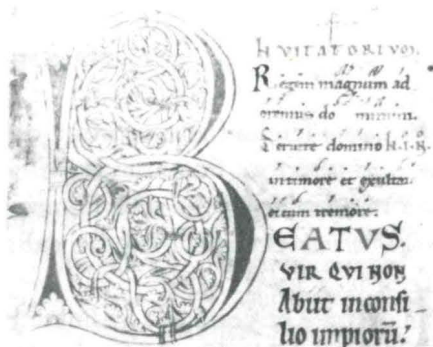 INVITATORIVM.
Regem magnum ad
oremus do minum.
Seruite domino
in timore et exulta
ei cum tremore.
BEATVS.
VIR QVI NON
Abiit inconsi
lio impiorū.